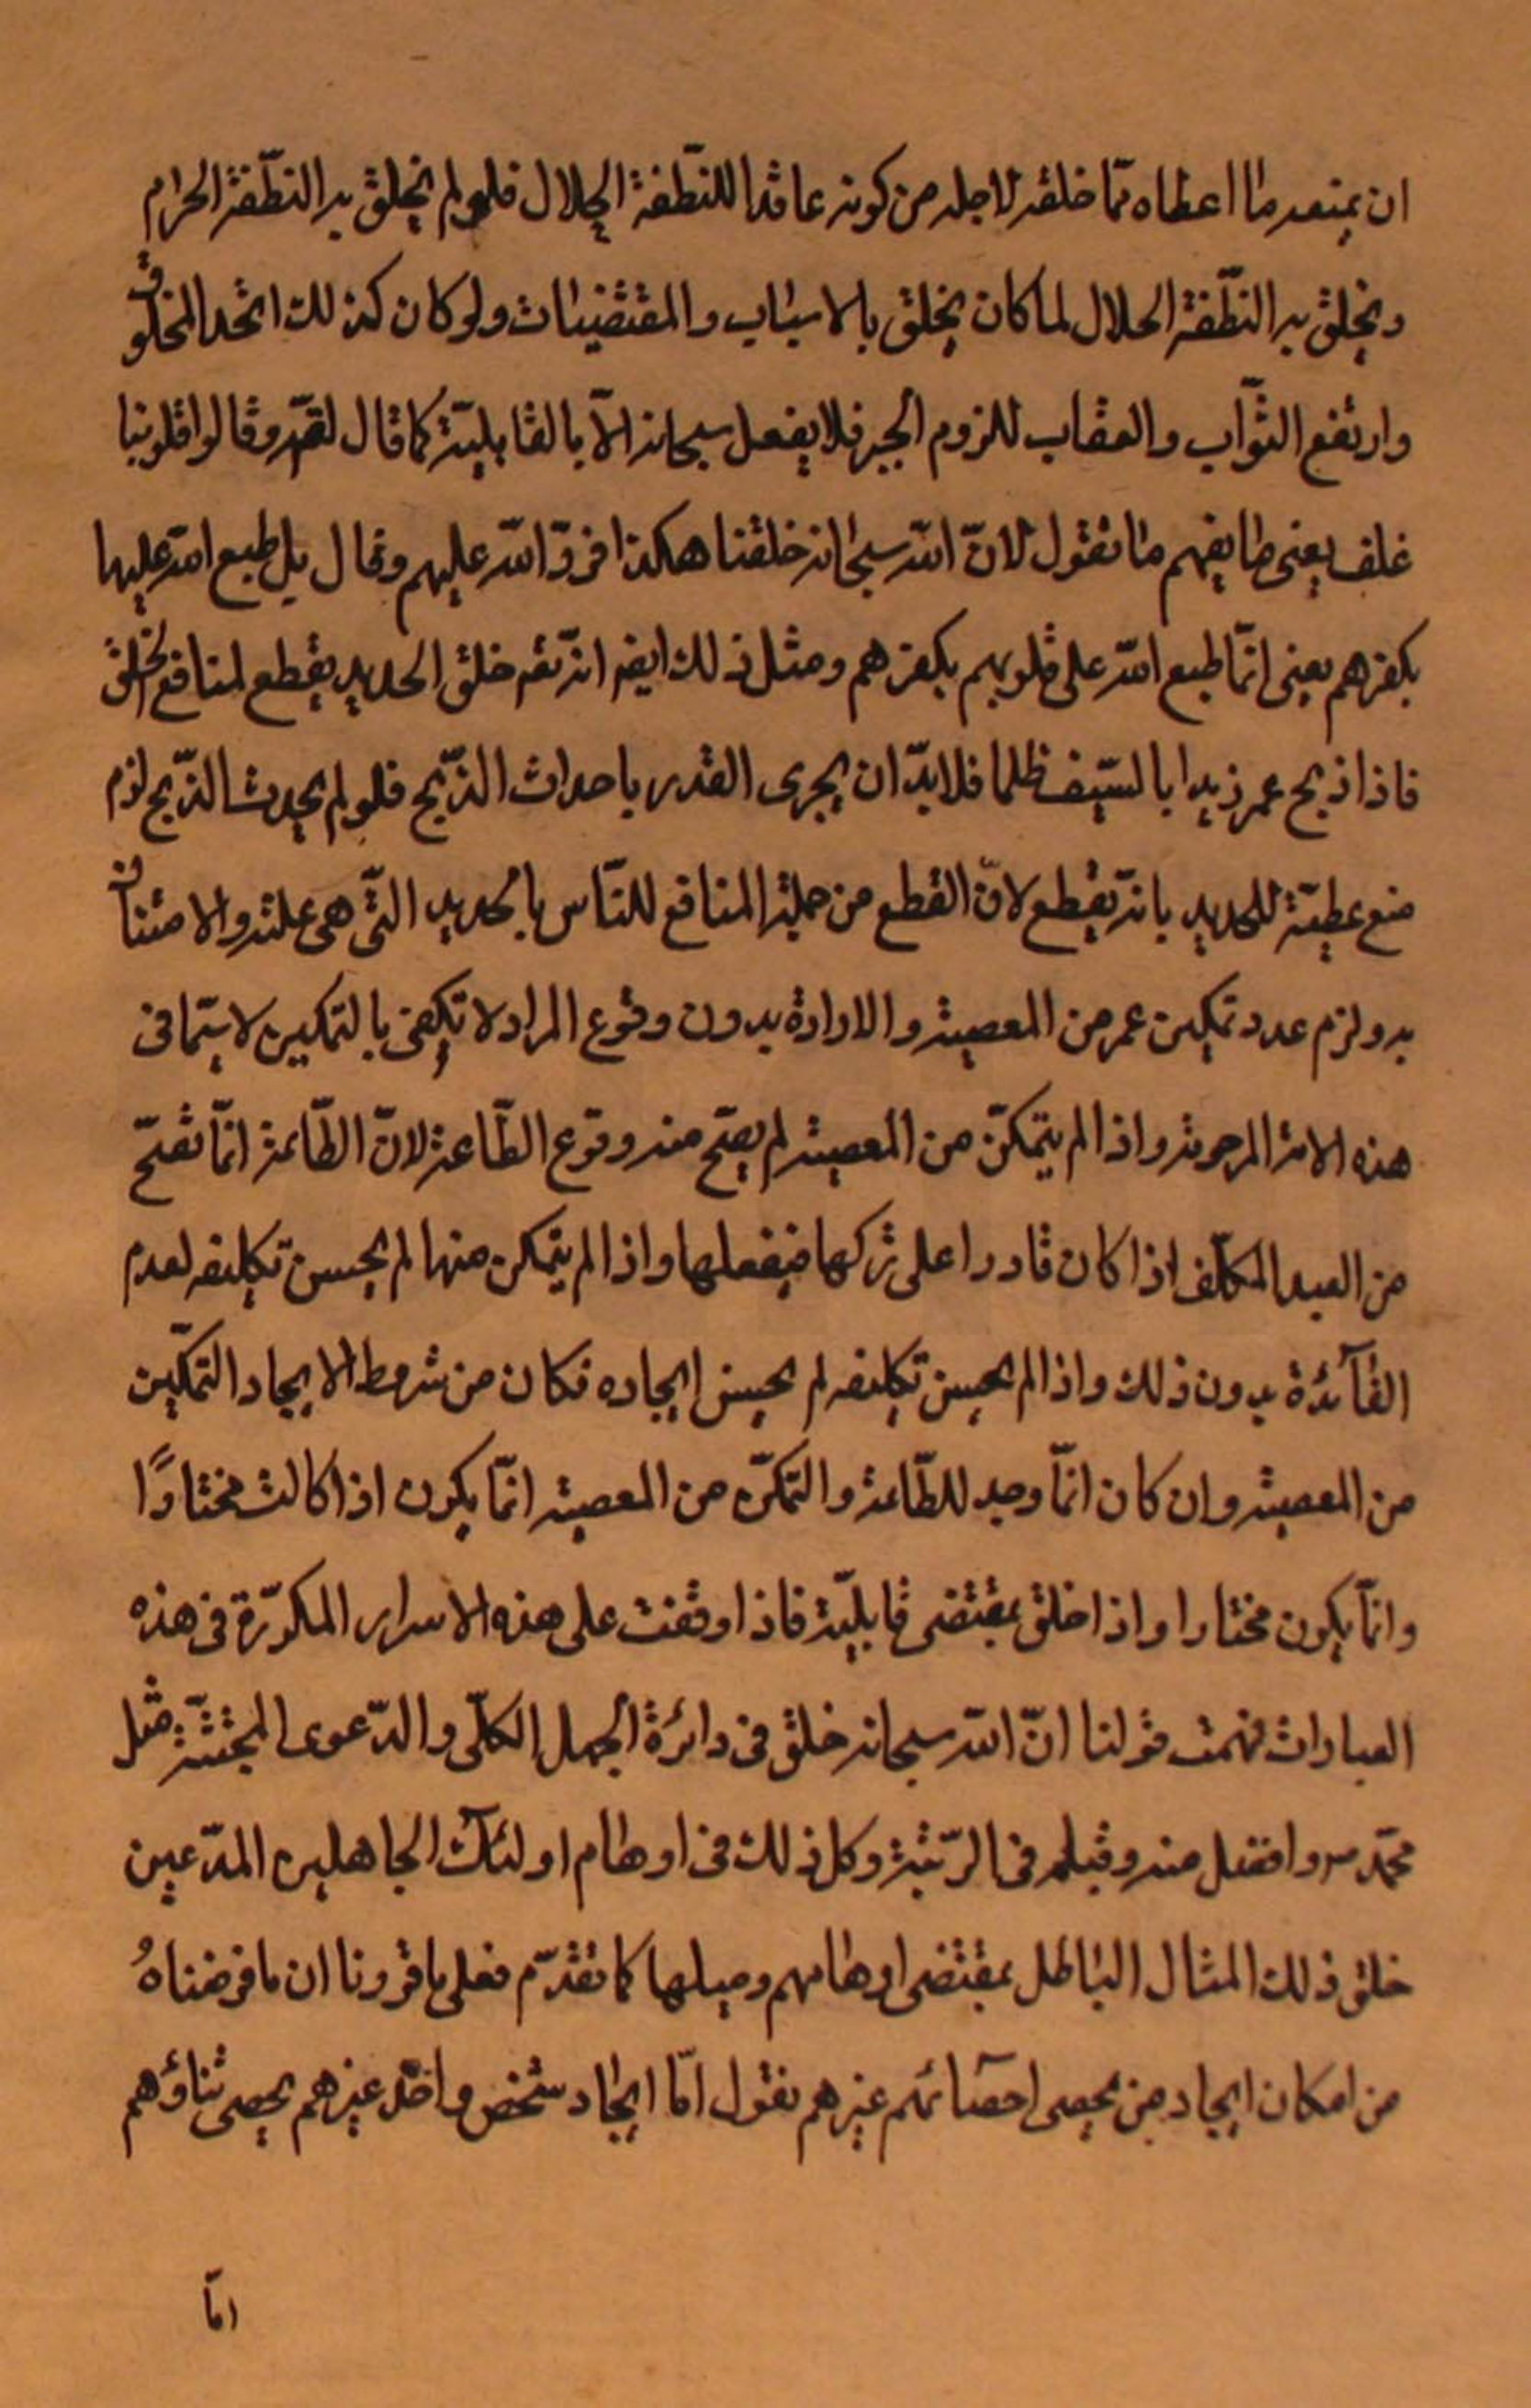 ان يمنعه ما اعطاه ممّا خلقه لاجله من كونه عاقدا للنّطفة الحلال فلو لم يخلق به النطّفة الحرام
ويخلق به النطّفة الحلال لما كان يخلق بالاسباب والمقتضيات ولو كان كذلك اتحد المخلوق
وارتفع الثّواب والعقاب للزوم الجبر فلا يفعل سبحانه الاّ بالقابليّة كما قال تعم وقالوا قلوبنا
غلف يعنى ما يفهم ما تقول لانّ اللّه سبحانه خلقنا هكذا فردّ اللّه عليهم وقال بل طبع اللّه عليها
بكفرهم يعنى انمّا طبع اللّه على قلوبهم بكفرهم ومثل ذلك ايض انّه تعم خلق الحديد يقطع لمنافع الخلق
فاذا ذبح عمر زيدا بالسّيف ظلما فلابدّ ان يجرى القدر باحداث الذّبح فلو لم يحدث الذّبح لزم
منع عطيّة للحديد بانّه يقطع لانّ القطع من جملة المنافع للنّاس بالحديد التّى هى علته والامتنان
به ولزم عدد تمكين عمر من المعصية والارادة بدون وقوع المراد لا تكفى بالتمكين لا سيّما فى
هذه الامة المرحومة واذا لم يتمكنّ من المعصية لم يصحّ منه وقوع الطّاعة لانّ الطّاعة انمّا تصحّ
من العبد المكلّف اذا كان قادرا على تركها فيفعلها واذا لم يتمكن منها لم يحسن تكليفه لعدم
الفآئدة بدون ذلك واذا لم يحسن تكليفه لم يحسن ايجاده فكان من شروط الايجاد التمكّين
من المعصية وان كان انمّا وجد للطّاعة والتمكنّ من المعصية انمّا يكون اذا كانت مختارًا
وانمّا يكون مختارا واذا خلق بمقتضى قابليّة فاذا وقفت على هذه الاسرار المكرّرة فى هذه
العبارات فهمت قولنا انّ اللّه سبحانه خلق فى دائرة الجهل الكلّى والدّعوى المجتثّة مثل
محمّد ص وافضل منه وقبله فى الرّتبة وكل ذلك فى اوهام اولئآك الجاهلين المدّعين
خلق ذلك المثال الباطل بمقتضى اوهامهم وميلها كما تقدّم فعلى ما قررنا ان ما فرضناهُ
من امكان ايجاد من يحصى احصآئهم غيرهم نقول امّا ايجاد شخص واحد غيرهم يحصى ثناؤهم
امّا